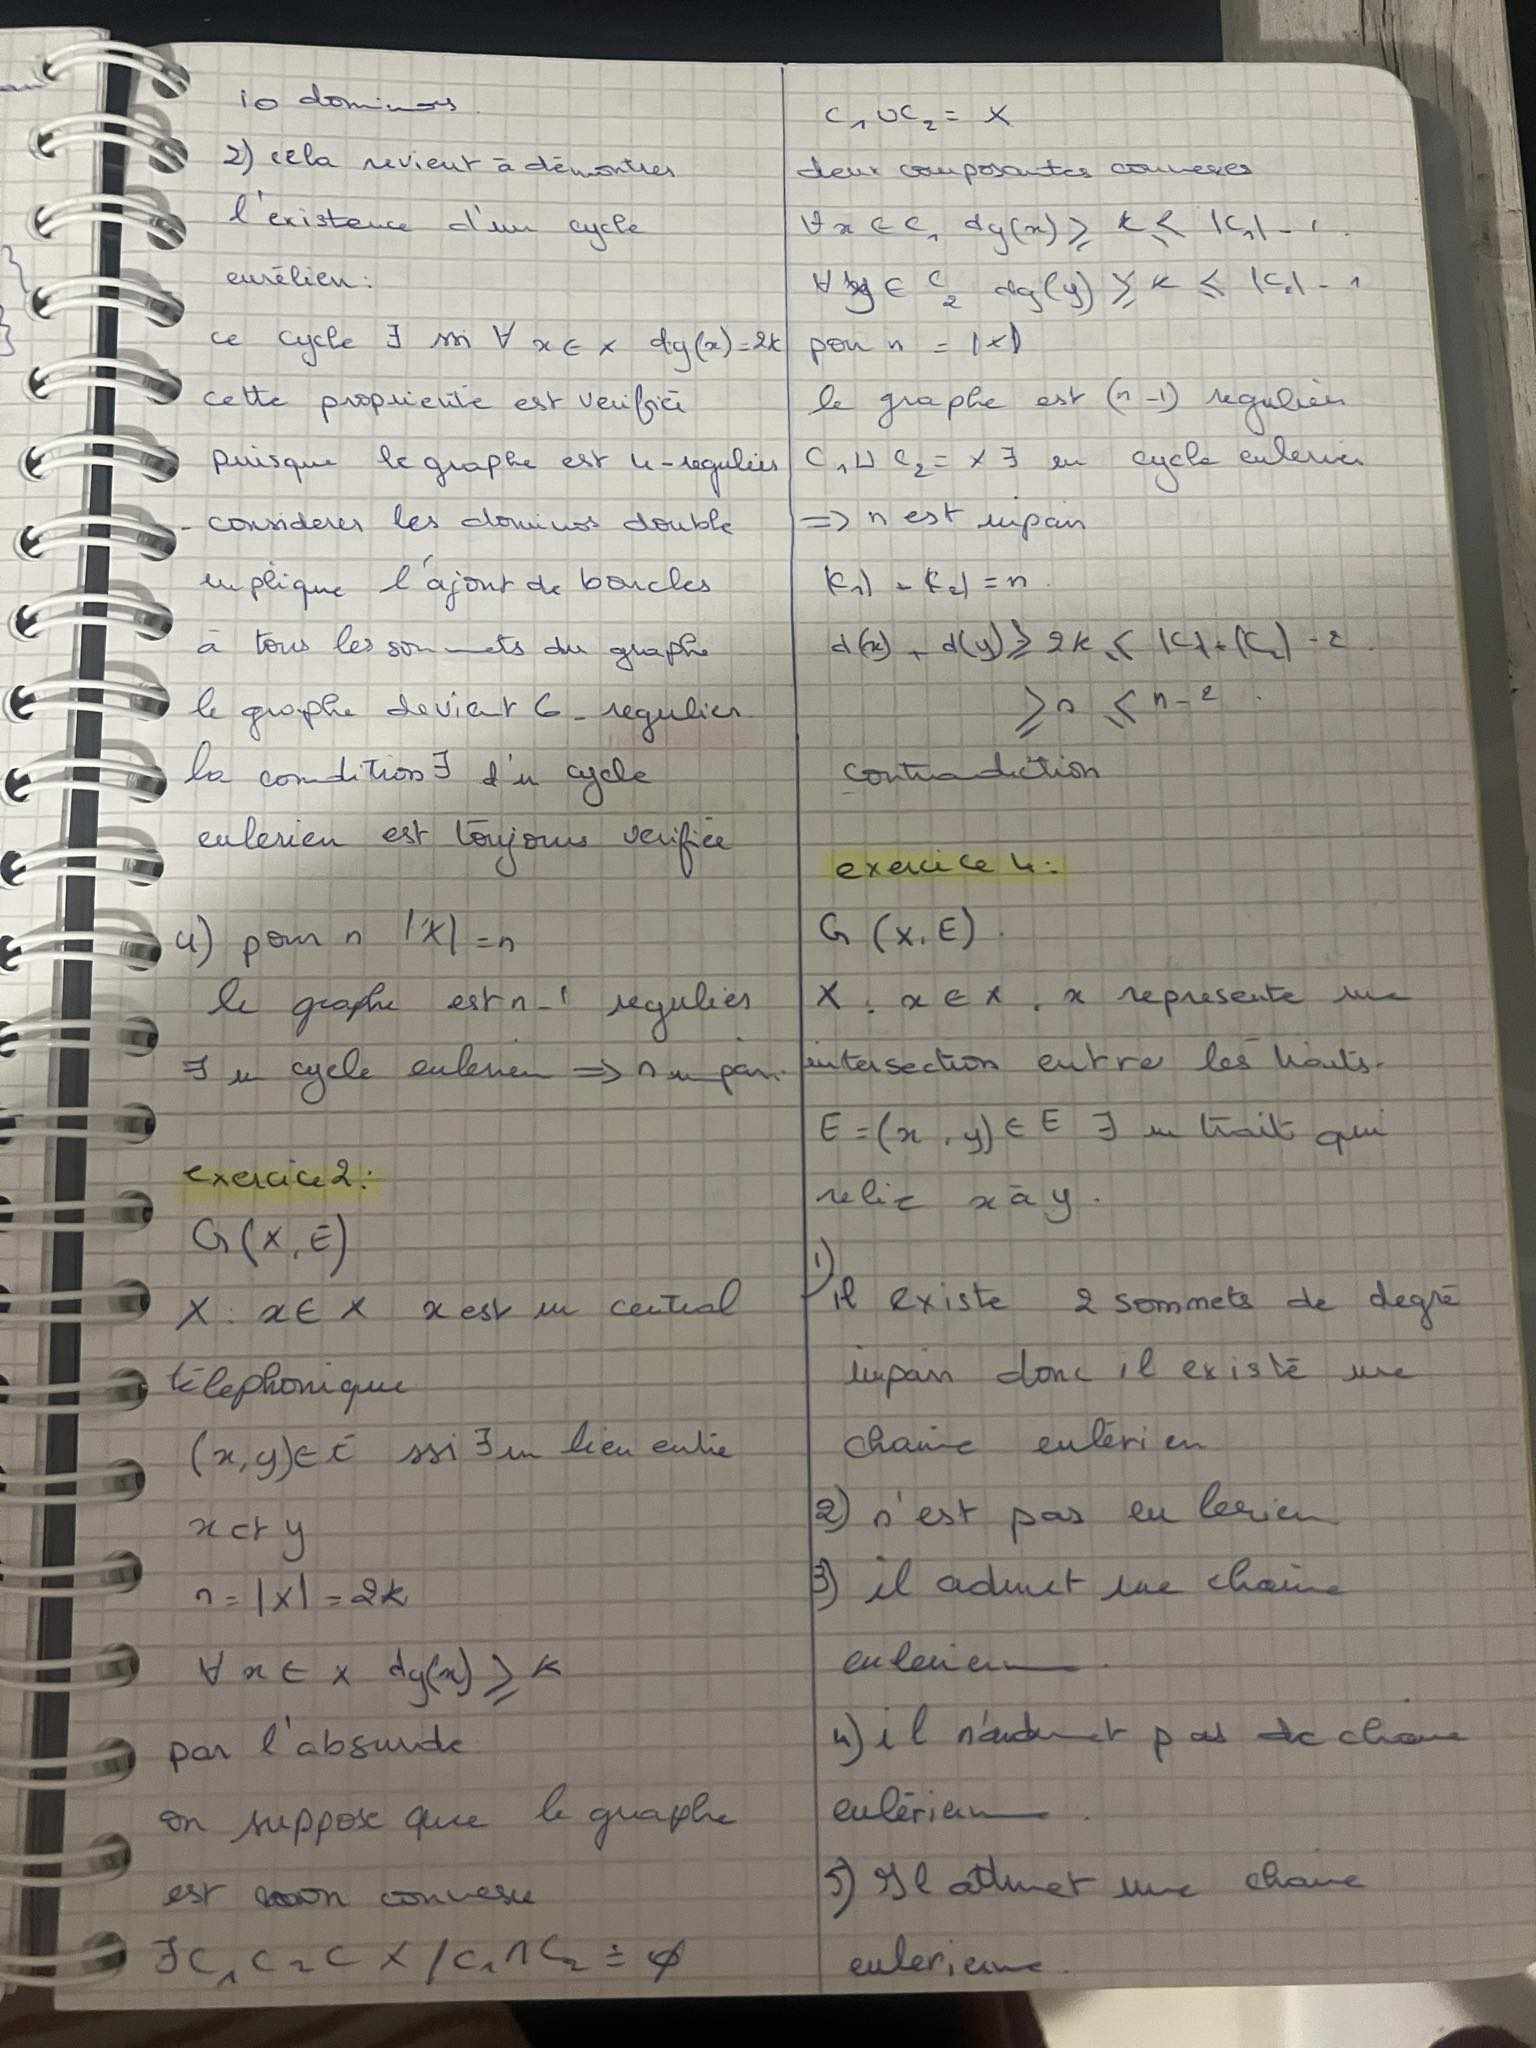 10 dominos.
2) cela revient à démontrer
l'existence d'un cycle
eurélien :
ce cycle ∃ ssi ∀ x ∈ X dg(x) = 2k
cette propriété est vérifié
puisque le graphe est 4-regulier
- considerer les dominos double
implique l'ajout de boucles
à tous les sommets du graphe
le graphe devient 6-regulier
la condition ∃ d'un cycle
eulerien est toujours verifiée
4) pour n |X| = n
le graphe est n-1 regulier
∃ un cycle eulerien => n impair.
exercice 2 :
G(X, E)
X : x ∈ X x est un central
téléphonique
(x, y) ∈ E ssi ∃ un lien entre
x et y
n = |X| = 2k
∀ x ∈ X dg(x) ⩾ k
par l'absurde
on suppose que le graphe
est non connexe
∃ C1 C2 ⊂ X / C1 ∩ C2 = ∅
C1 ∪ C2 = X
deux composantes connexes
∀ x ∈ C1 dg(x) ⩾ k ⩽ |C1| - 1.
∀ y ∈ C2 dg(y) ⩾ k ⩽ |C2| - 1
pour n = |X|
le graphe est (n-1) regulier
C1 ⊔ C2 = X ∃ un cycle eulerien
=> n est impair
|C1| - |C2| = n.
d(x) + d(y) ⩾ 2k ⩽ |C1| + |C2| - 2.
⩾ n ⩽ n - 2.
contradiction
exercice 4 :
G (X, E).
X : x ∈ X, x represente une
intersection entre les traits.
E = (x, y) ∈ E ∃ un trait qui
relie x à y.
1) il existe 2 sommets de degré
impair donc il existe une
chaine eulérien
2) n'est pas eulerien
3) il admet une chaine
eulerienne.
4) il n'admet pas de chaine
eulérienne.
5) Il admet une chaine
eulerienne.